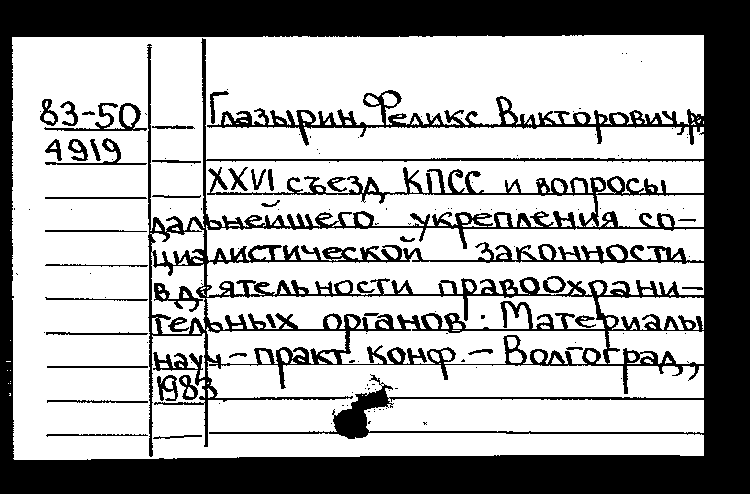 83-50 Глазырин, Феликс Викторович, ред
4919
XXVI съезд КПСС и вопросы
дальнейшего укрепления со-
циалистической законности
в деятельности правоохрани-
тельных органов: Материалы
науч.-практ. конф.- Волгоград,,
1983